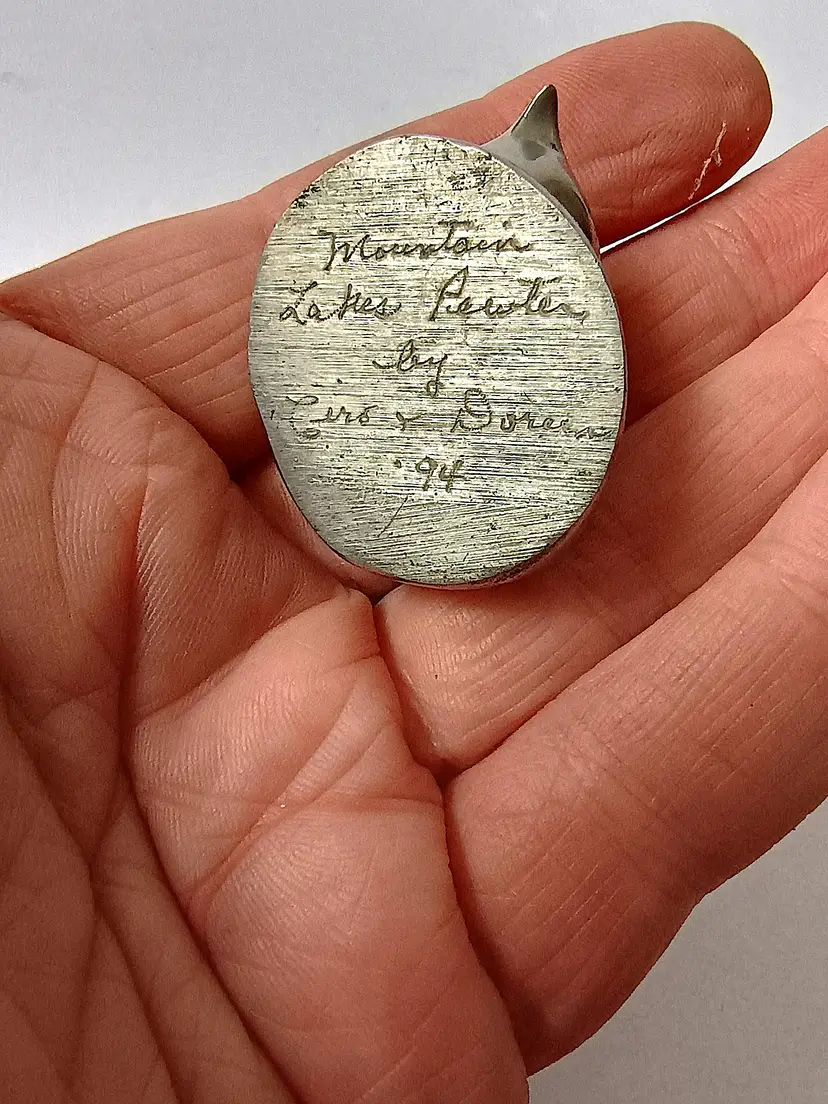 Mountain
Lakes Pewter
by
Ciro & Doreen
'94